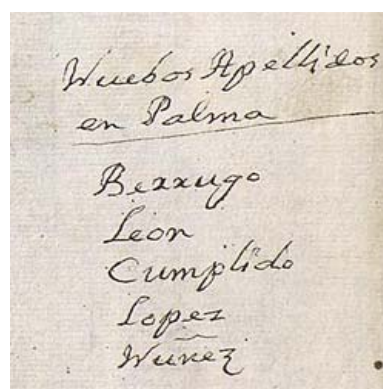 Nuebos Apellidos
en Palma
Berrugo
Leon
Cumplido
Lopez
Nuñez